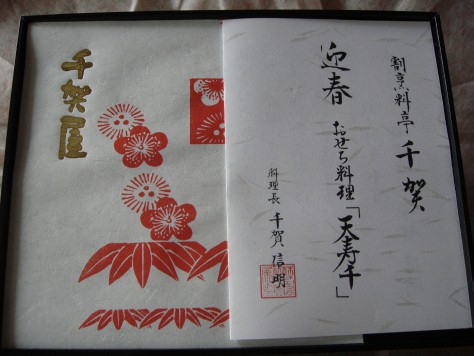 割烹料亭 千賀
迎春 おせち料理「天寿千」
料理長 千賀信明
千賀屋